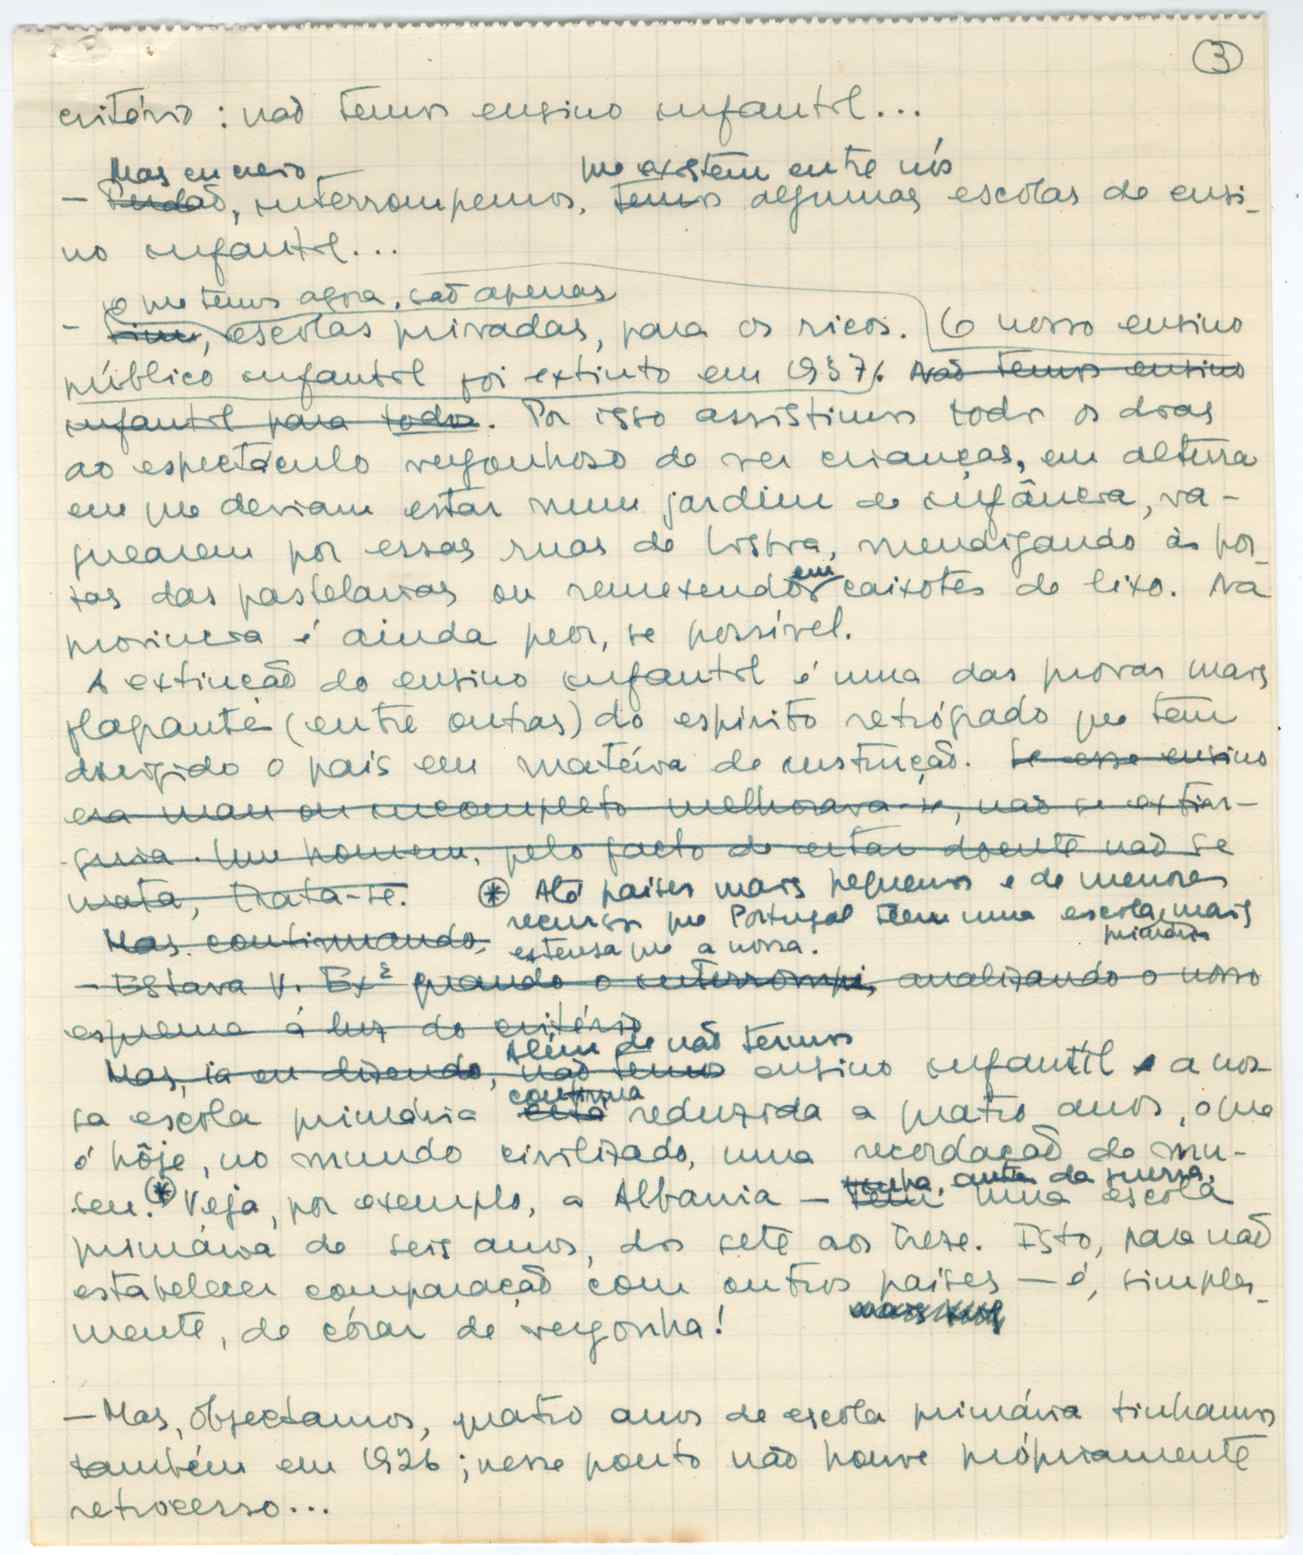 3
critério : não temos ensino infantil...
Mas eu creio que existem entre nós
- Perdão, interrompemos, temos algumas escolas de ensi-
no infantil...
O que temos agora, são apenas
- Sim, escolas privadas, para os ricos. O nosso ensino
público infantil foi extinto em 1937. Não temos ensino
infantil para todos. Por isso assistimos todos os dias
ao espectáculo vergonhoso de ver crianças, em altura
em que deviam estar num jardim de infância, va-
guearem por essas ruas de Lisboa, mendigando às por-
em
tas das pastelarias ou remexendo caixotes de lixo. Na
província é ainda peor, se possível.
A extinção do ensino infantil é uma das provas mais
flagrantes (entre outras) do espírito retrógrado que tem
dirigido o país em matéria de instrução. Se esse ensino
era mau ou incompleto melhorava-se, não se extin-
guia. Um homem, pelo facto de estar doente não se
mata, trata-se. * Até países mais pequenos e de menores
recursos que Portugal teem uma escola mais
primária
Mas continuando. extensa que a nossa.
- Estava V. Exª quando o interrompi, analizando o nosso
esquema á luz do critério
Além de não termos
Mas, ia eu dizendo, não temos ensino infantil a nos-
continua
sa escola primária está reduzida a quatro anos, o que
é hôje, no mundo civilizado, uma recordação de mu-
tinha, antes da guerra,
seu. * Veja, por exemplo, a Albania - tem uma escola
primária de seis anos, dos sete aos treze. Isto, para não
estabelecer comparação com outros países - é, simples-
mente, de córar de vergonha!
- Mas, objectamos, quatro anos de escola primária tinhamos
também em 1926; nesse ponto não houve própriamente
retrocesso...